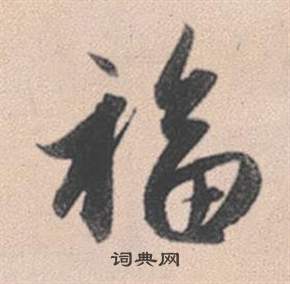 福
词典网